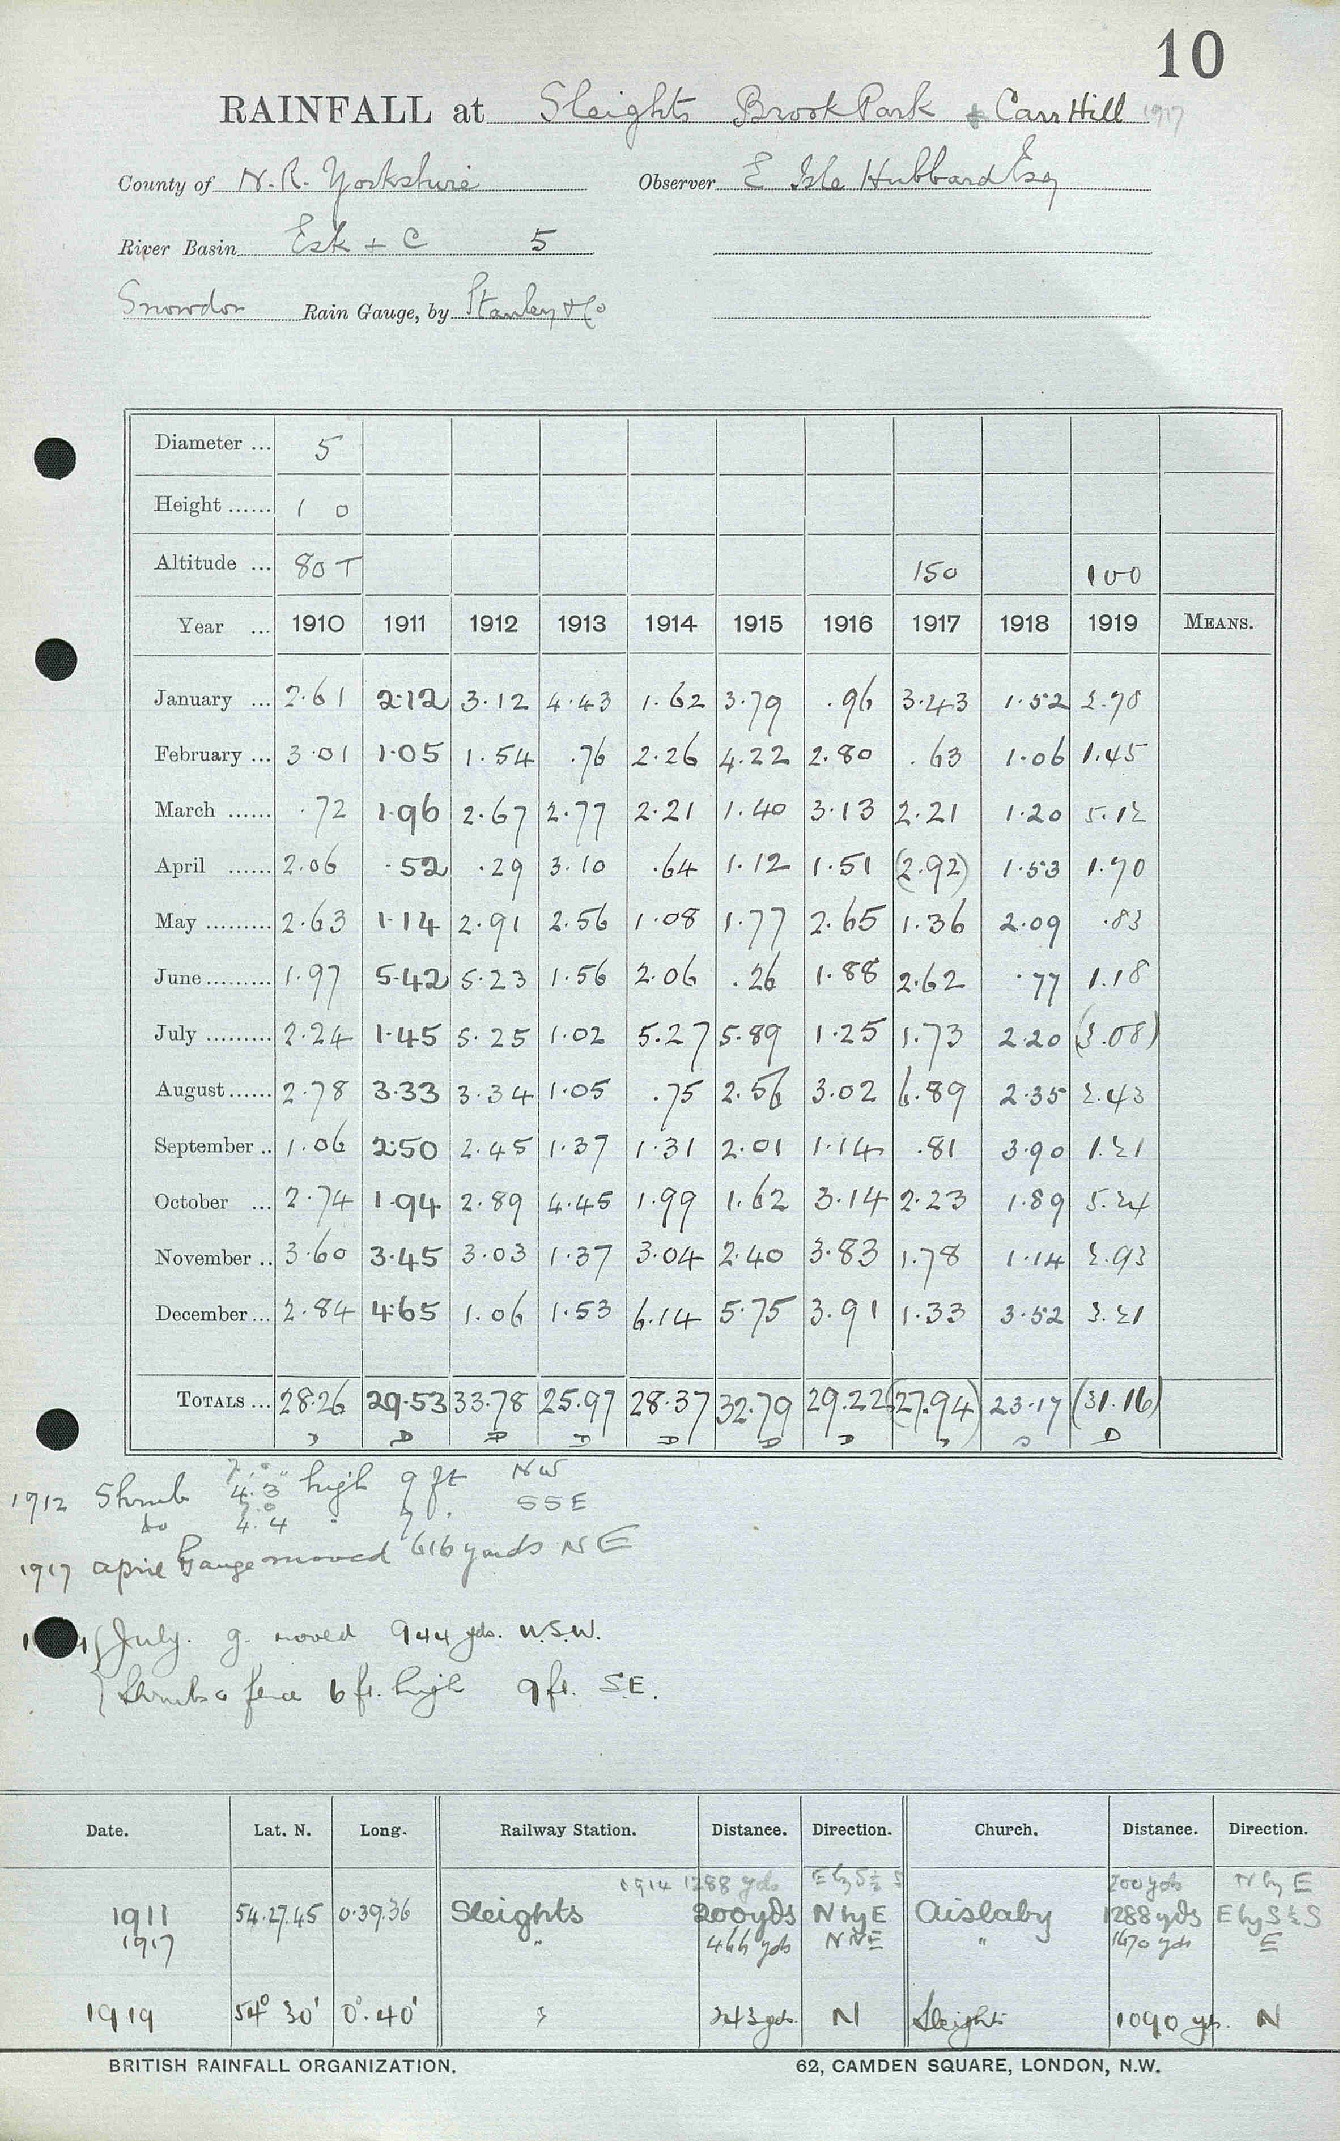 10
RAINFALL at Sleights Brook Park & Carr Hill 1917
County of N.R. Yorkshire Observer E Isle Hubbard Esq
River Basin Esk + C 5
Snowdon Rain Gauge, by Stanley & Co
Diameter ... 5
Height ...... 1 0
Altitude ... 80 T 150 100
Year ... 1910 1911 1912 1913 1914 1915 1916 1917 1918 1919 MEANS.
January ... 2.61 2.12 3.12 4.43 1.62 3.79 .96 3.43 1.52 2.78
February ... 3.01 1.05 1.54 .76 2.26 4.22 2.80 .63 1.06 1.45
March ...... .72 1.96 2.67 2.77 2.21 1.40 3.13 2.21 1.20 5.12
April ...... 2.06 .52 .29 3.10 .64 1.12 1.51 (2.92) 1.53 1.70
May ......... 2.63 1.14 2.91 2.56 1.08 1.77 2.65 1.36 2.09 .83
June ......... 1.97 5.42 5.23 1.56 2.06 .26 1.88 2.62 .77 1.18
July ......... 2.24 1.45 5.25 1.02 5.27 5.89 1.25 1.73 2.20 (3.08)
August ...... 2.78 3.33 3.34 1.05 .75 2.56 3.02 6.89 2.35 2.43
September .. 1.06 2.50 2.45 1.37 1.31 2.01 1.14 .81 3.90 1.21
October ... 2.74 1.94 2.89 4.45 1.99 1.62 3.14 2.23 1.89 5.24
November .. 3.60 3.45 3.03 1.37 3.04 2.40 3.83 1.78 1.14 2.93
December ... 2.84 4.65 1.06 1.53 6.14 5.75 3.91 1.33 3.52 3.21
TOTALS ... 28.26 29.53 33.78 25.97 28.37 32.79 29.22 (27.94) 23.17 (31.16)
D D D D D D D D D D
1912 Shrub 4.3 high 9 ft NW
do 4.4 " 7 " SSE
1917 april Gauge moved 616 yards NE
July. g. moved 944 yds. W.S.W.
Shrubs & fence 6 ft. high 9 ft. S.E.
Date. Lat. N. Long. Railway Station. Distance. Direction. Church. Distance. Direction.
1914 1288 yds E by S ½ S 200 yds N by E
1911 54.27.45 0.39.36 Sleights 200 yds N by E Aislaby 1288 yds E by S ½ S
1917 " 466 yds NNE " 1670 yds E
1919 54° 30' 0°.40' " 243 yds. N Sleights 1090 yds. N
BRITISH RAINFALL ORGANIZATION. 62, CAMDEN SQUARE, LONDON, N.W.